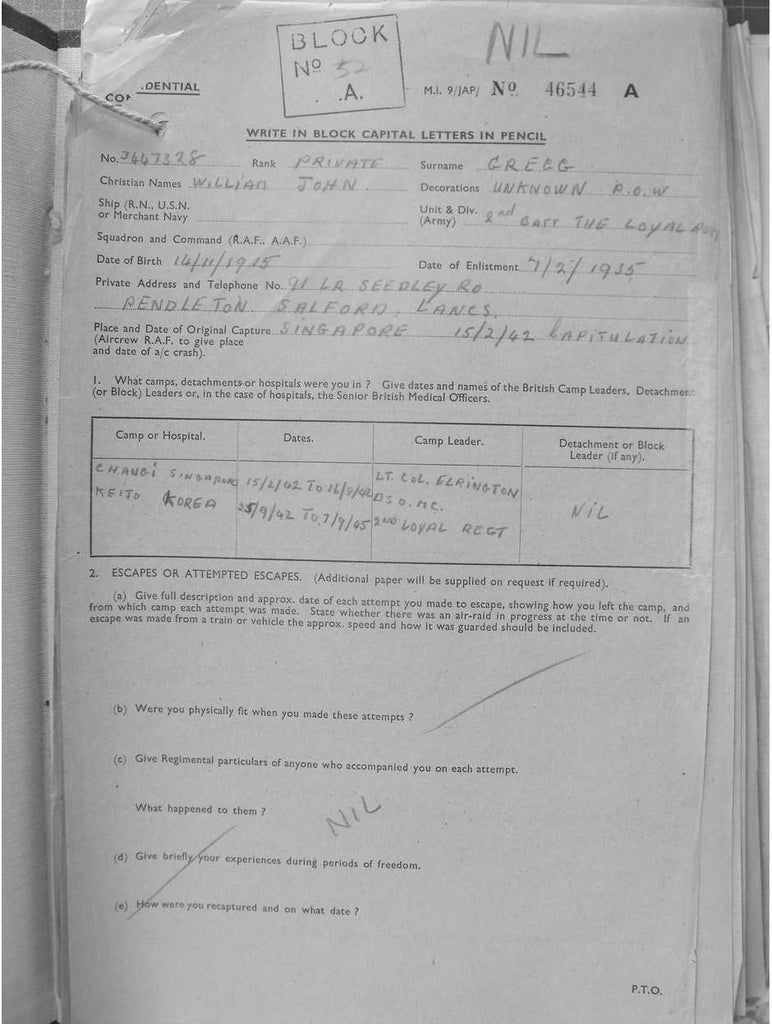 BLOCK
Nº 52
A.
NIL
DENTIAL
CO
M.I. 9/JAP/ Nº 46544 A
WRITE IN BLOCK CAPITAL LETTERS IN PENCIL
No. 3447328 Rank PRIVATE Surname GREGG
Christian Names WILLIAM JOHN. Decorations UNKNOWN P.O.W
Ship (R.N., U.S.N. or Merchant Navy
Unit & Div. (Army) 2nd BATT THE LOYAL
Squadron and Command (R.A.F., A.A.F.)
Date of Birth 14/11/1915 Date of Enlistment 7/2/1935
Private Address and Telephone No. 91 LR SEEDLEY RD
PENDLETON SALFORD. LANCS.
Place and Date of Original Capture SINGAPORE 15/2/42 CAPITULATION
(Aircrew R.A.F. to give place
and date of a/c crash).
1. What camps, detachments or hospitals were you in ? Give dates and names of the British Camp Leaders, Detachment
(or Block) Leaders or, in the case of hospitals, the Senior British Medical Officers.
Camp or Hospital. Dates. Camp Leader. Detachment or Block Leader (if any).
CHANGI SINGAPORE 15/2/42 TO 16/9/42 LT. COL. ELRINGTON
KEIJO KOREA 25/9/42 TO 7/9/45 DSO. MC. NIL
2ND LOYAL REGT
2. ESCAPES OR ATTEMPTED ESCAPES. (Additional paper will be supplied on request if required).
(a) Give full description and approx. date of each attempt you made to escape, showing how you left the camp, and
from which camp each attempt was made. State whether there was an air-raid in progress at the time or not. If an
escape was made from a train or vehicle the approx. speed and how it was guarded should be included.
(b) Were you physically fit when you made these attempts ?
(c) Give Regimental particulars of anyone who accompanied you on each attempt.
What happened to them ?
NIL
(d) Give briefly your experiences during periods of freedom.
(e) How were you recaptured and on what date ?
P.T.O.